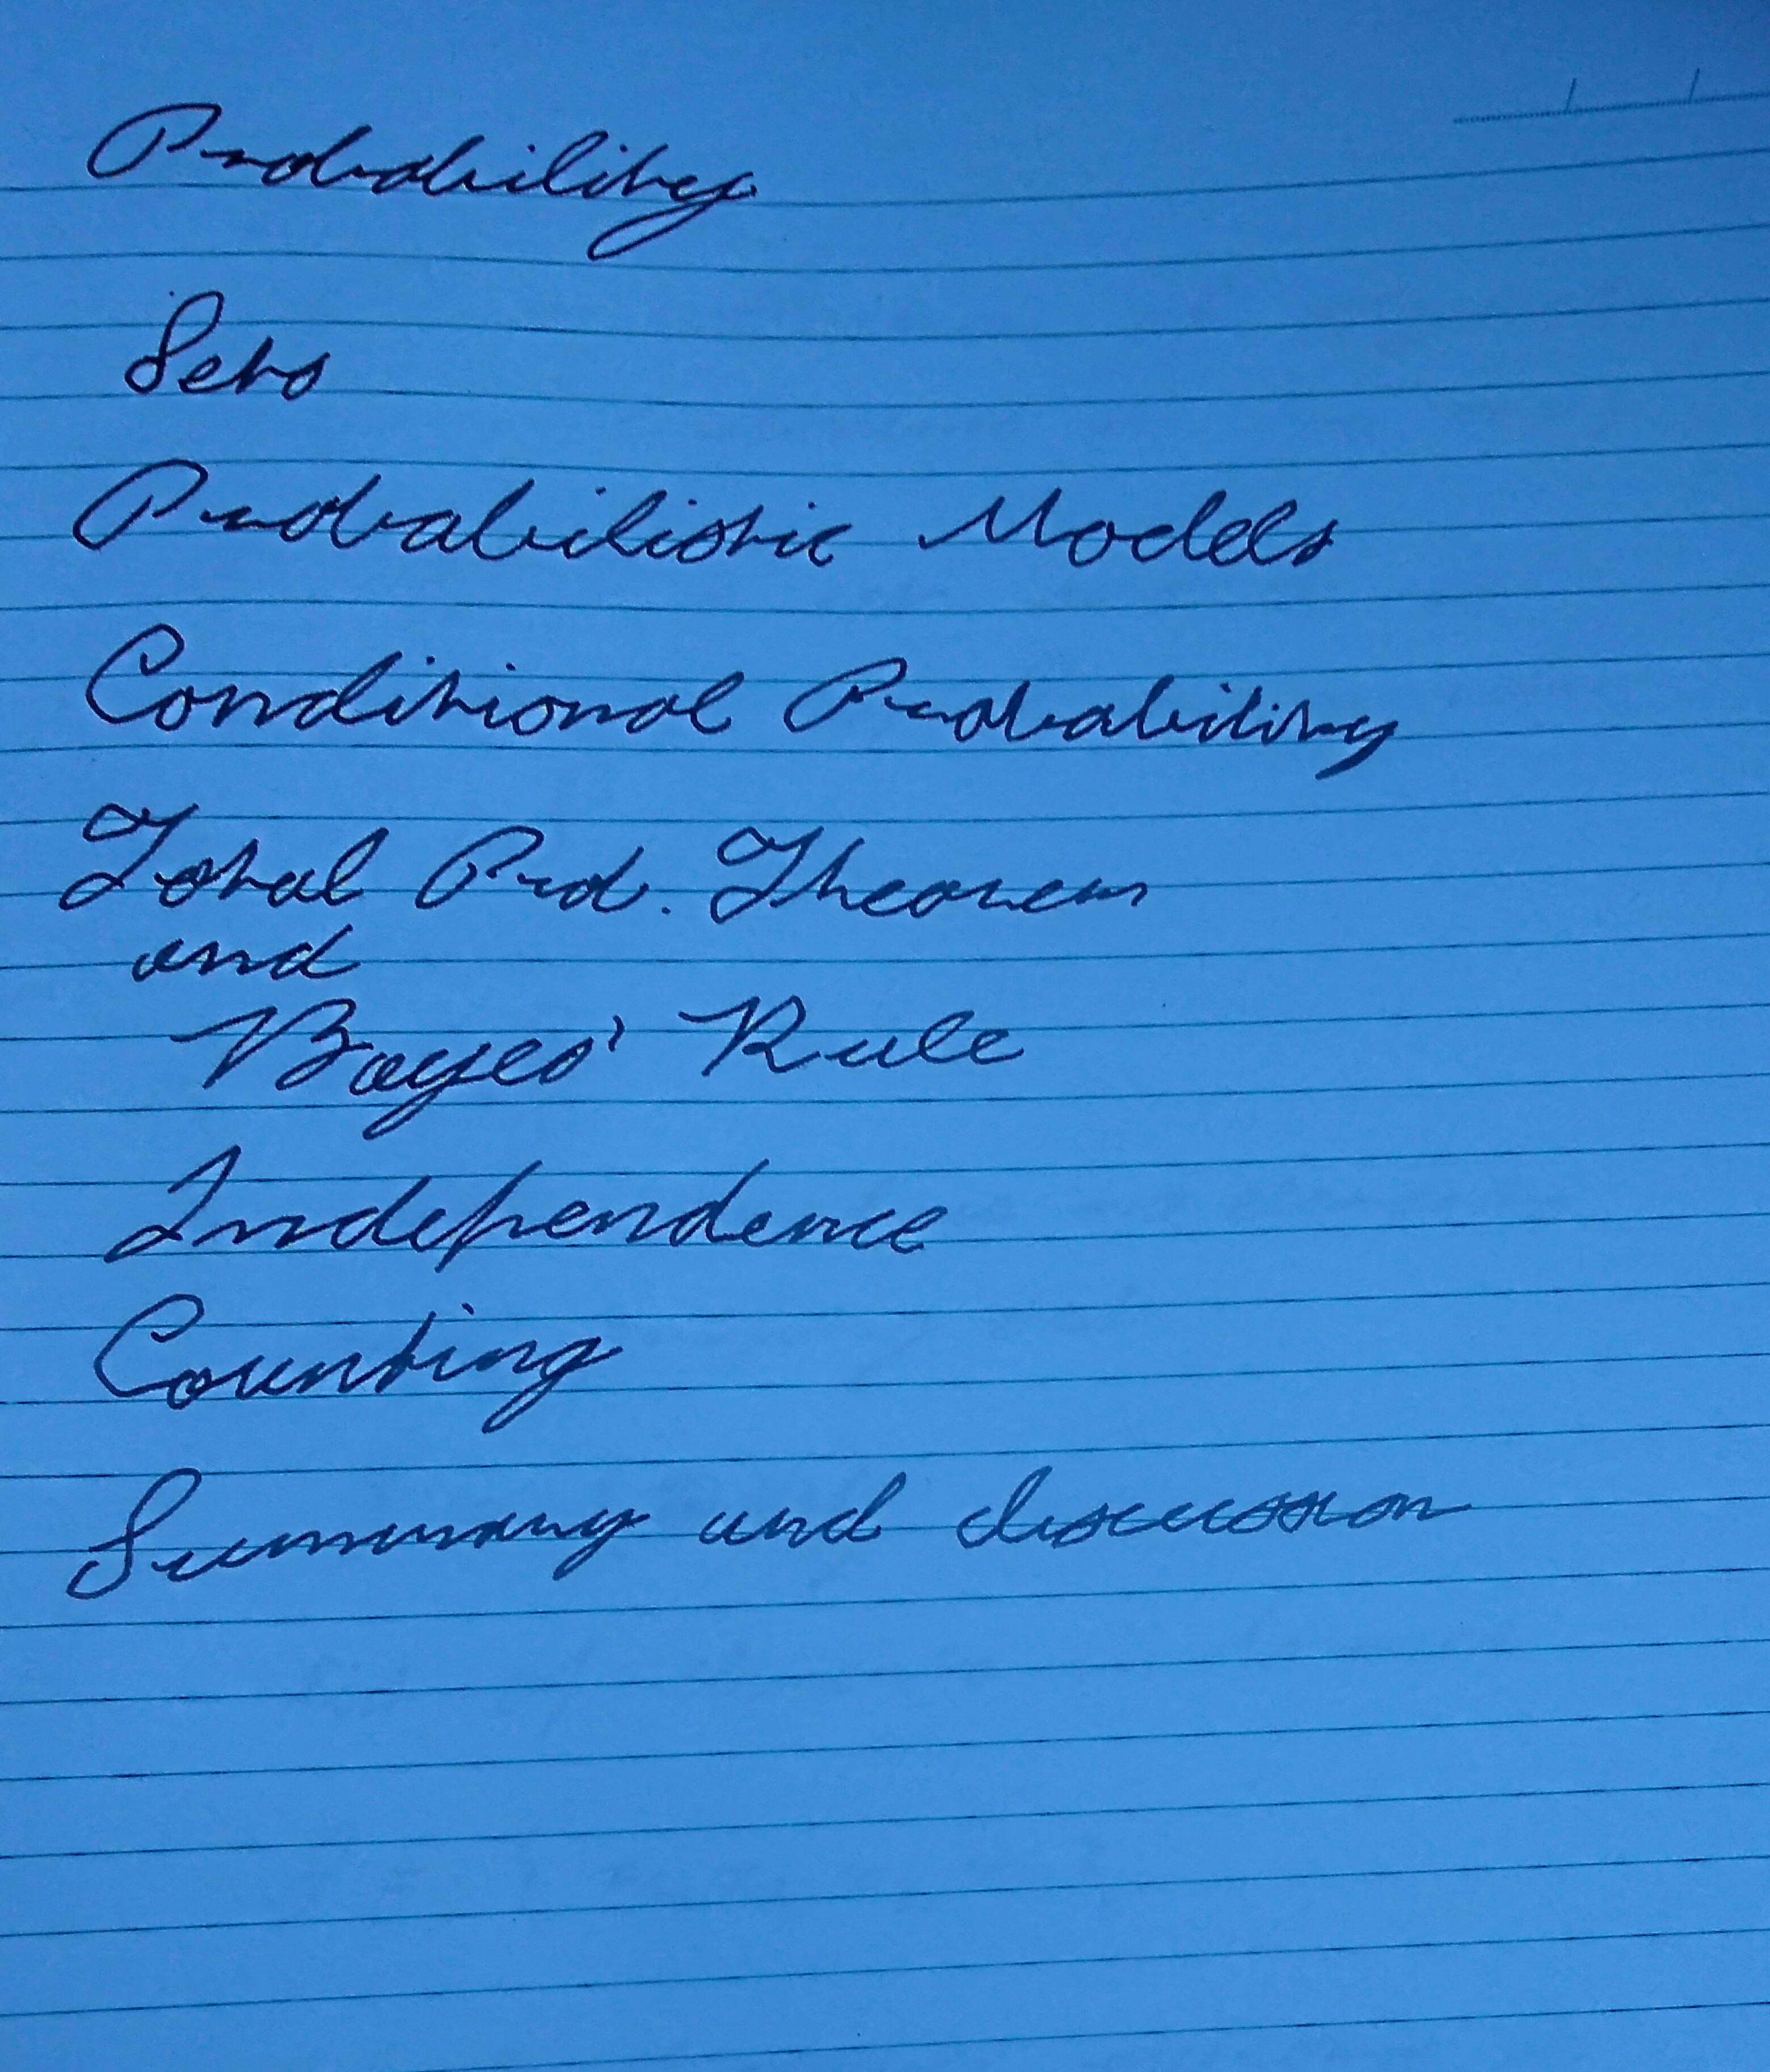 Probability
Sets
Probabilistic Models
Conditional Probability
Total Prob. Theorem
and
Bayes' Rule
Independence
Counting
Summary and discussion